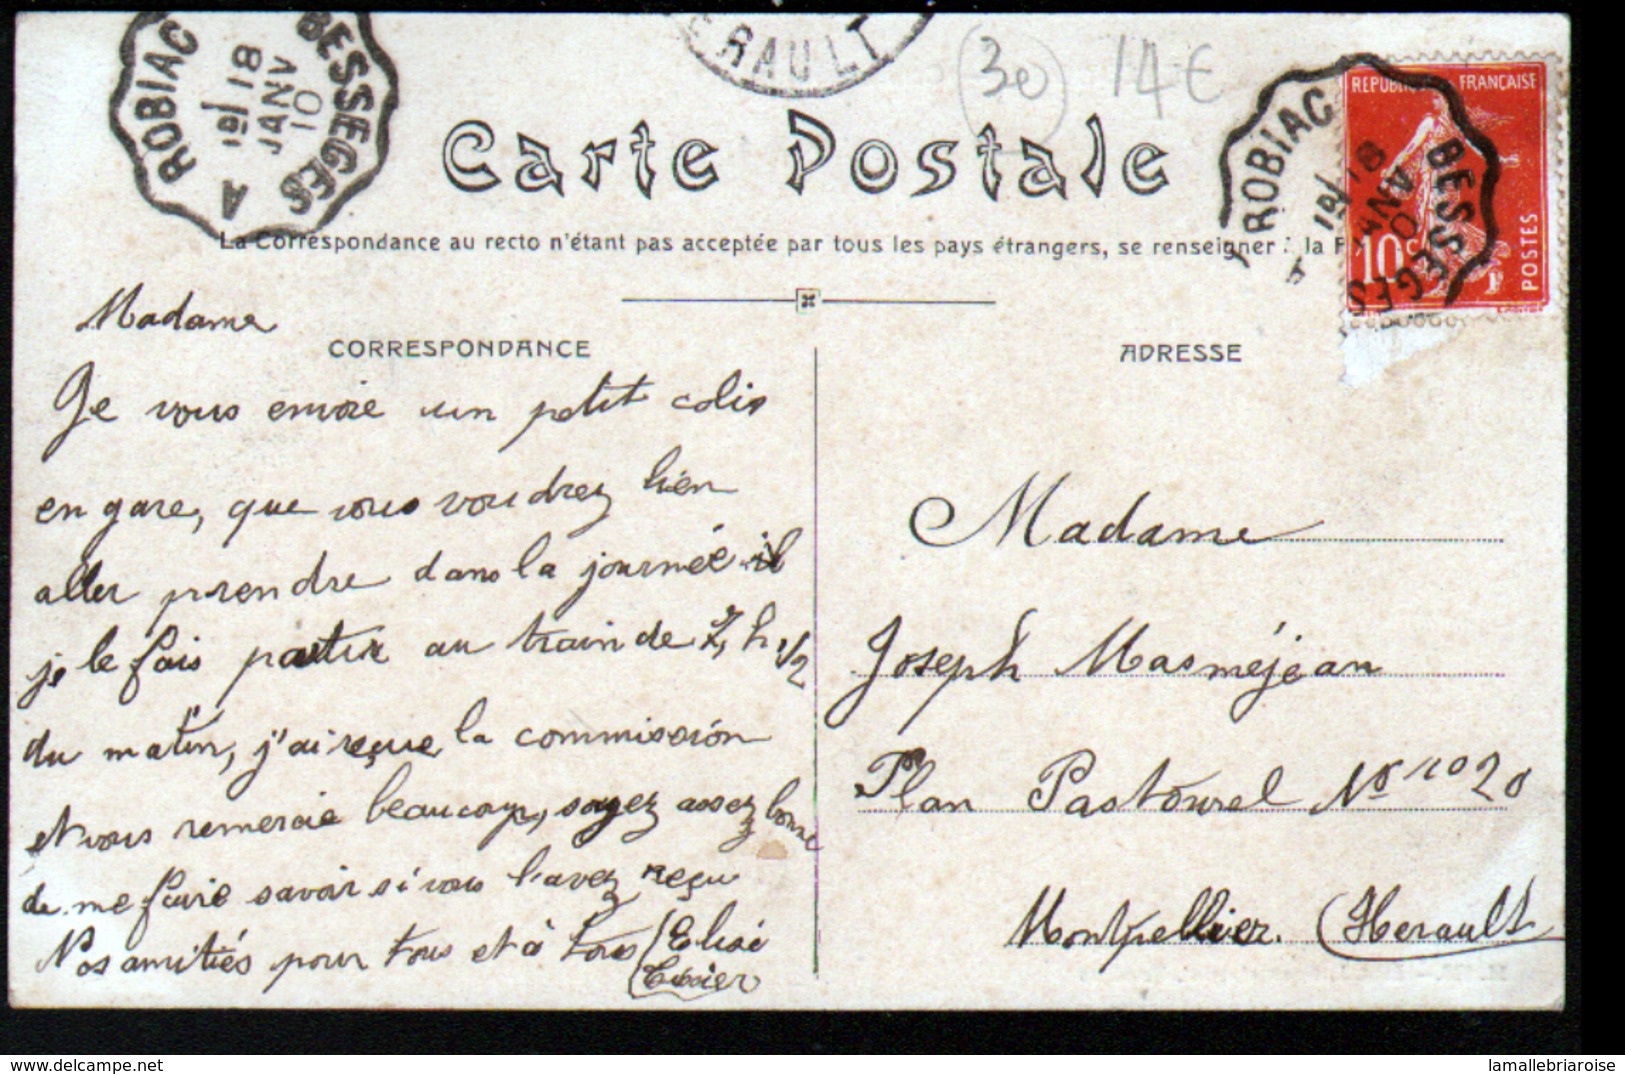 BESSEGES A ROBIAC
1E/ 18
JANV
10
ERAULT
30 14€
REPUBLIQUE FRANÇAISE
10c
POSTES
BESSEGES A ROBIAC
1E/ 18
Carte Postale
La Correspondance au recto n'étant pas acceptée par tous les pays étrangers, se renseigner à la P
CORRESPONDANCE
Madame
Je vous envoie un petit colis
en gare, que vous voudrez bien
aller prendre dans la journée
je le fais partir au train de 7 h 1/2
du matin, j'ai reçue la commission
et vous remercie beaucoup, soyez assez bonne
de me faire savoir si vous l'avez reçu
Nos amitiés pour tous et à tous
Elisé
ADRESSE
Madame
Joseph Masméjean
Plan Pastourel No 20
Montpellier. (Herault
http://www.delcampe.net
lamallebriaroise